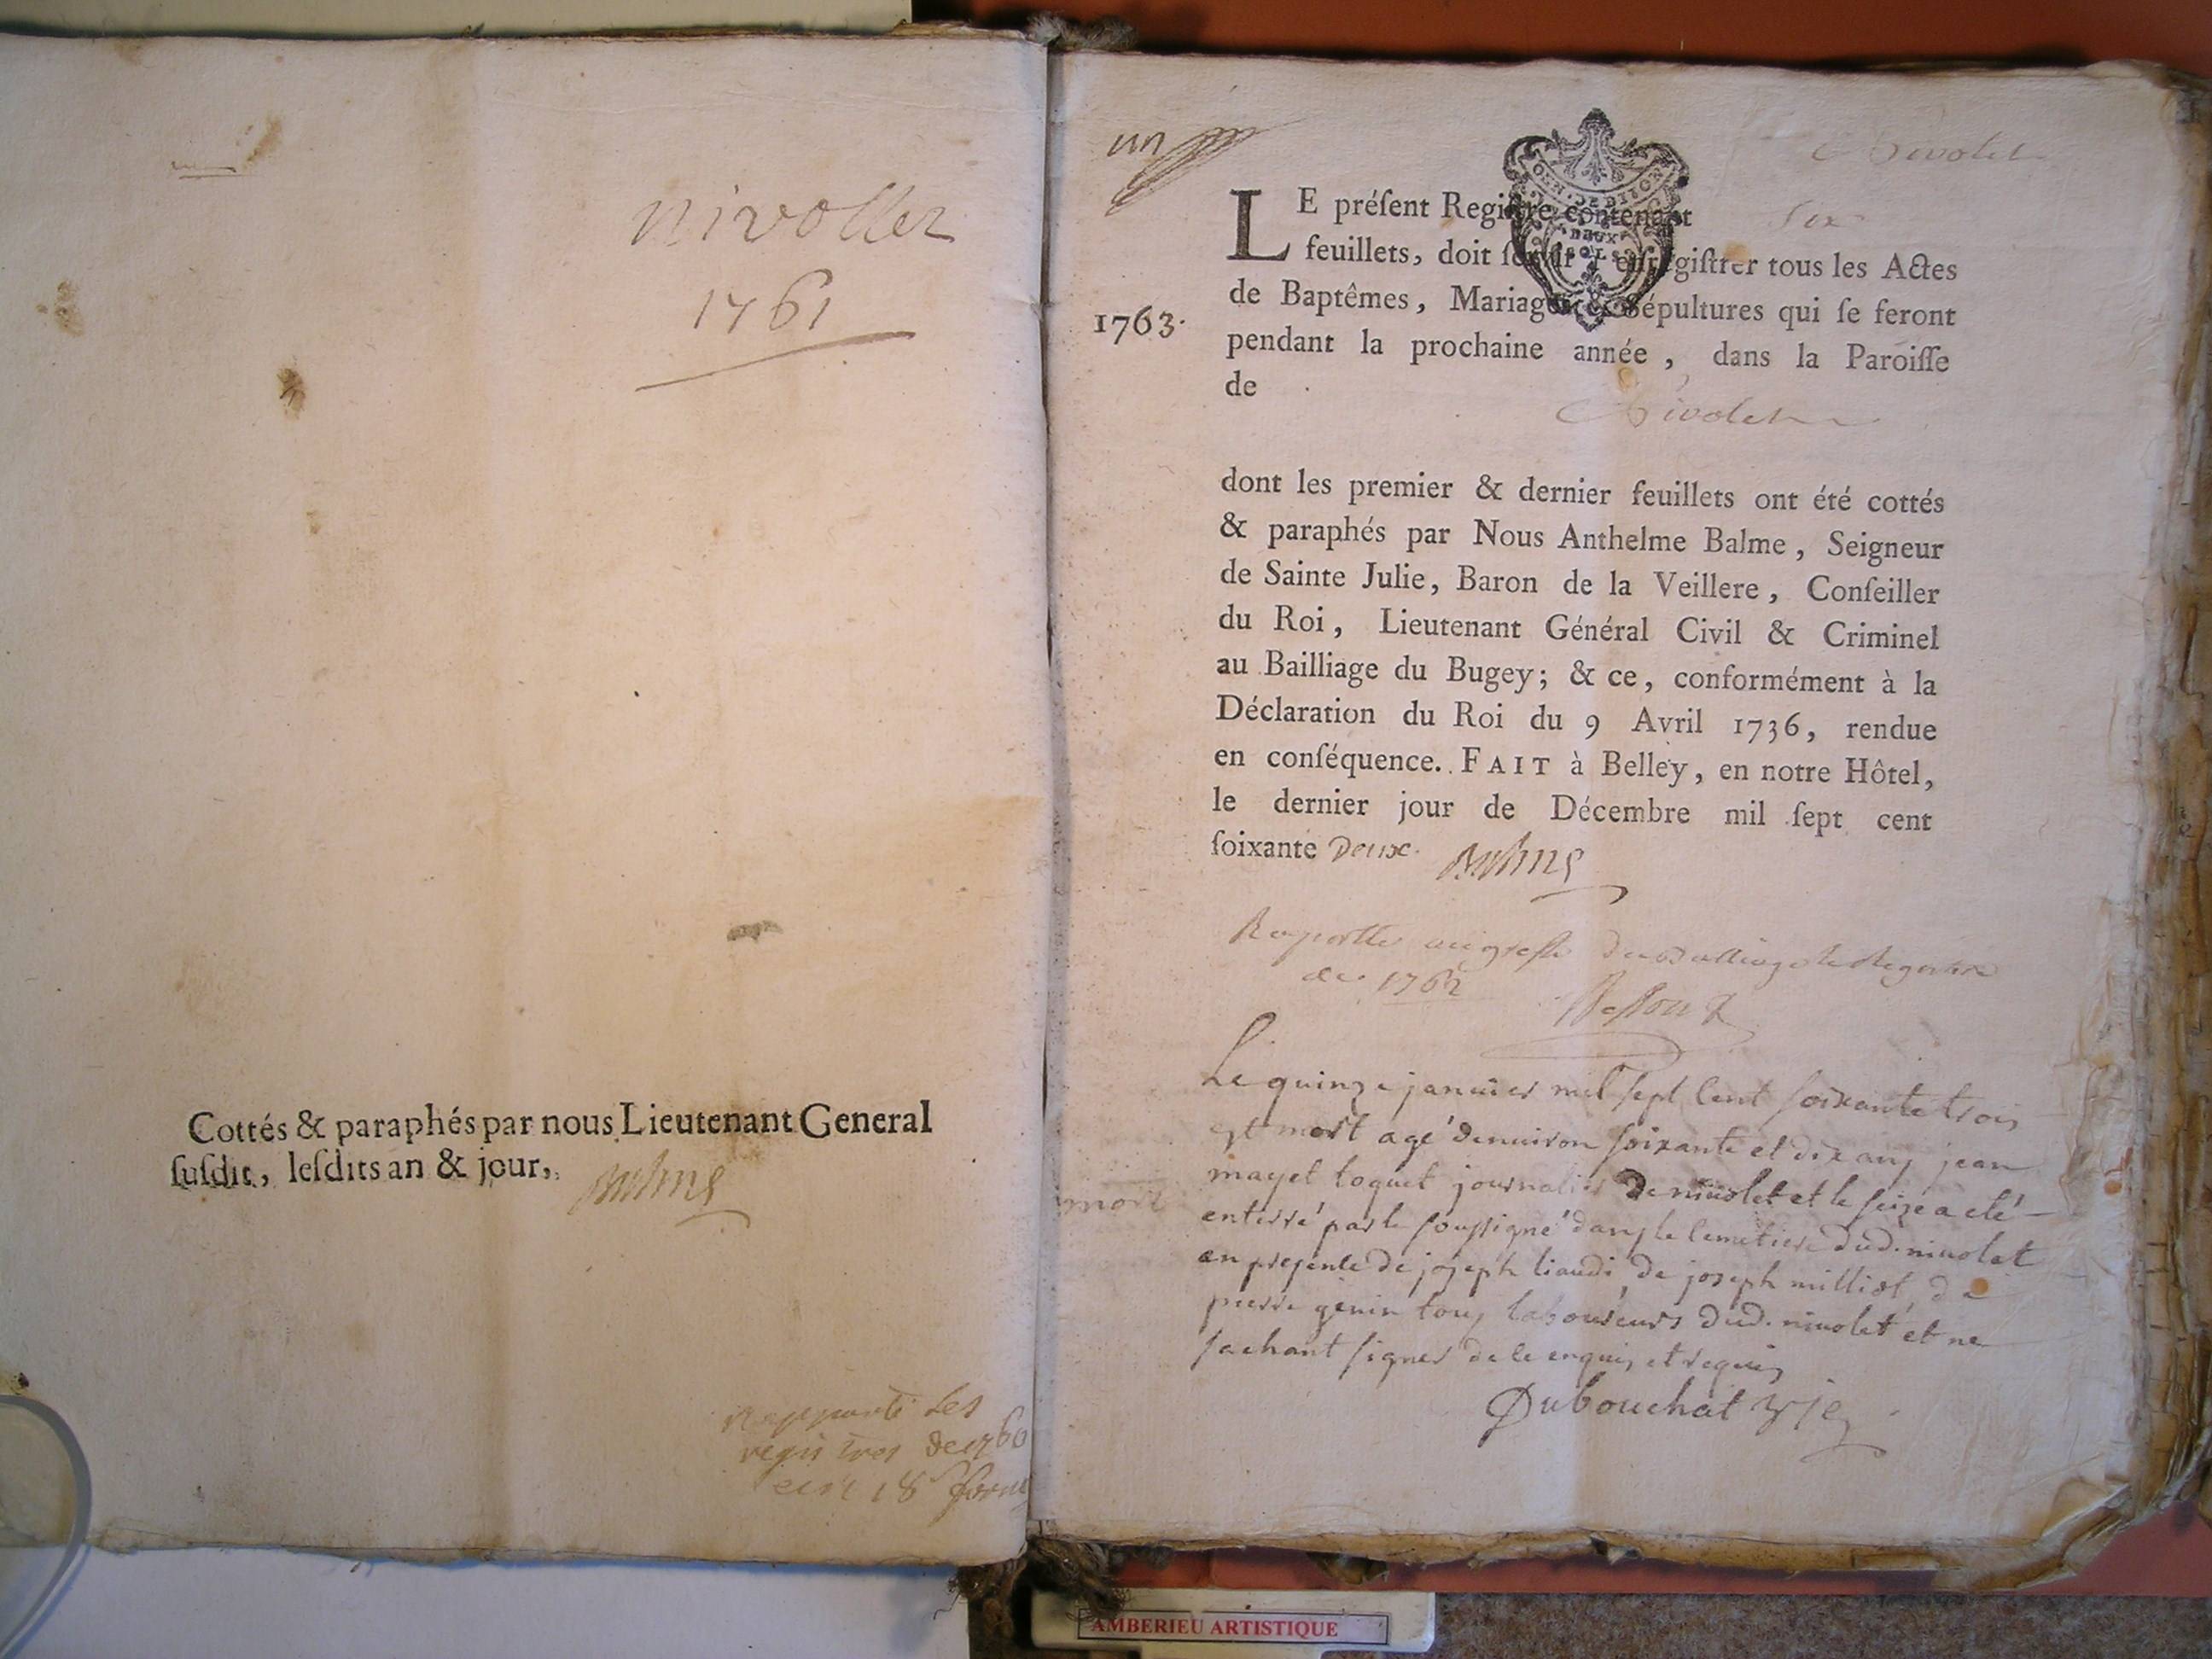 nivollet
1761
Cottés & paraphés par nous Lieutenant General
ſuſdit, leſdits an & jour,
Balme
Rapporté les
registres de 1760
un
Nivolet
LE préſent Regiſtre contenant six
feuillets, doit ſervir à enregiſtrer tous les Actes
de Baptêmes, Mariages & Sépultures qui ſe feront
1763.
pendant la prochaine année, dans la Paroiſſe
de
Nivolet
dont les premier & dernier feuillets ont été cottés
& paraphés par Nous Anthelme Balme, Seigneur
de Sainte Julie, Baron de la Veillere, Conſeiller
du Roi, Lieutenant Général Civil & Criminel
au Bailliage du Bugey; & ce, conformément à la
Déclaration du Roi du 9 Avril 1736, rendue
en conſéquence. FAIT à Belley, en notre Hôtel,
le dernier jour de Décembre mil ſept cent
ſoixante Deux. Balme
Raportté au greffe du Bailliage le Registre
de 1762
Le quinze janvier mil sept cent soixante trois
est mort agé denuiron soixante et dix ans jean
mayet toquet journalier De niuolet et le seize a eté
mort
enterré par le soussigné dans le cemetiere dud. niuolet
en presence de joseph liaudi, de joseph milliot, de
pierre genin tous laboureurs dud. niuolet et ne
sachant signer de ce enquis et requis
Dubouchat
AMBERIEU ARTISTIQUE